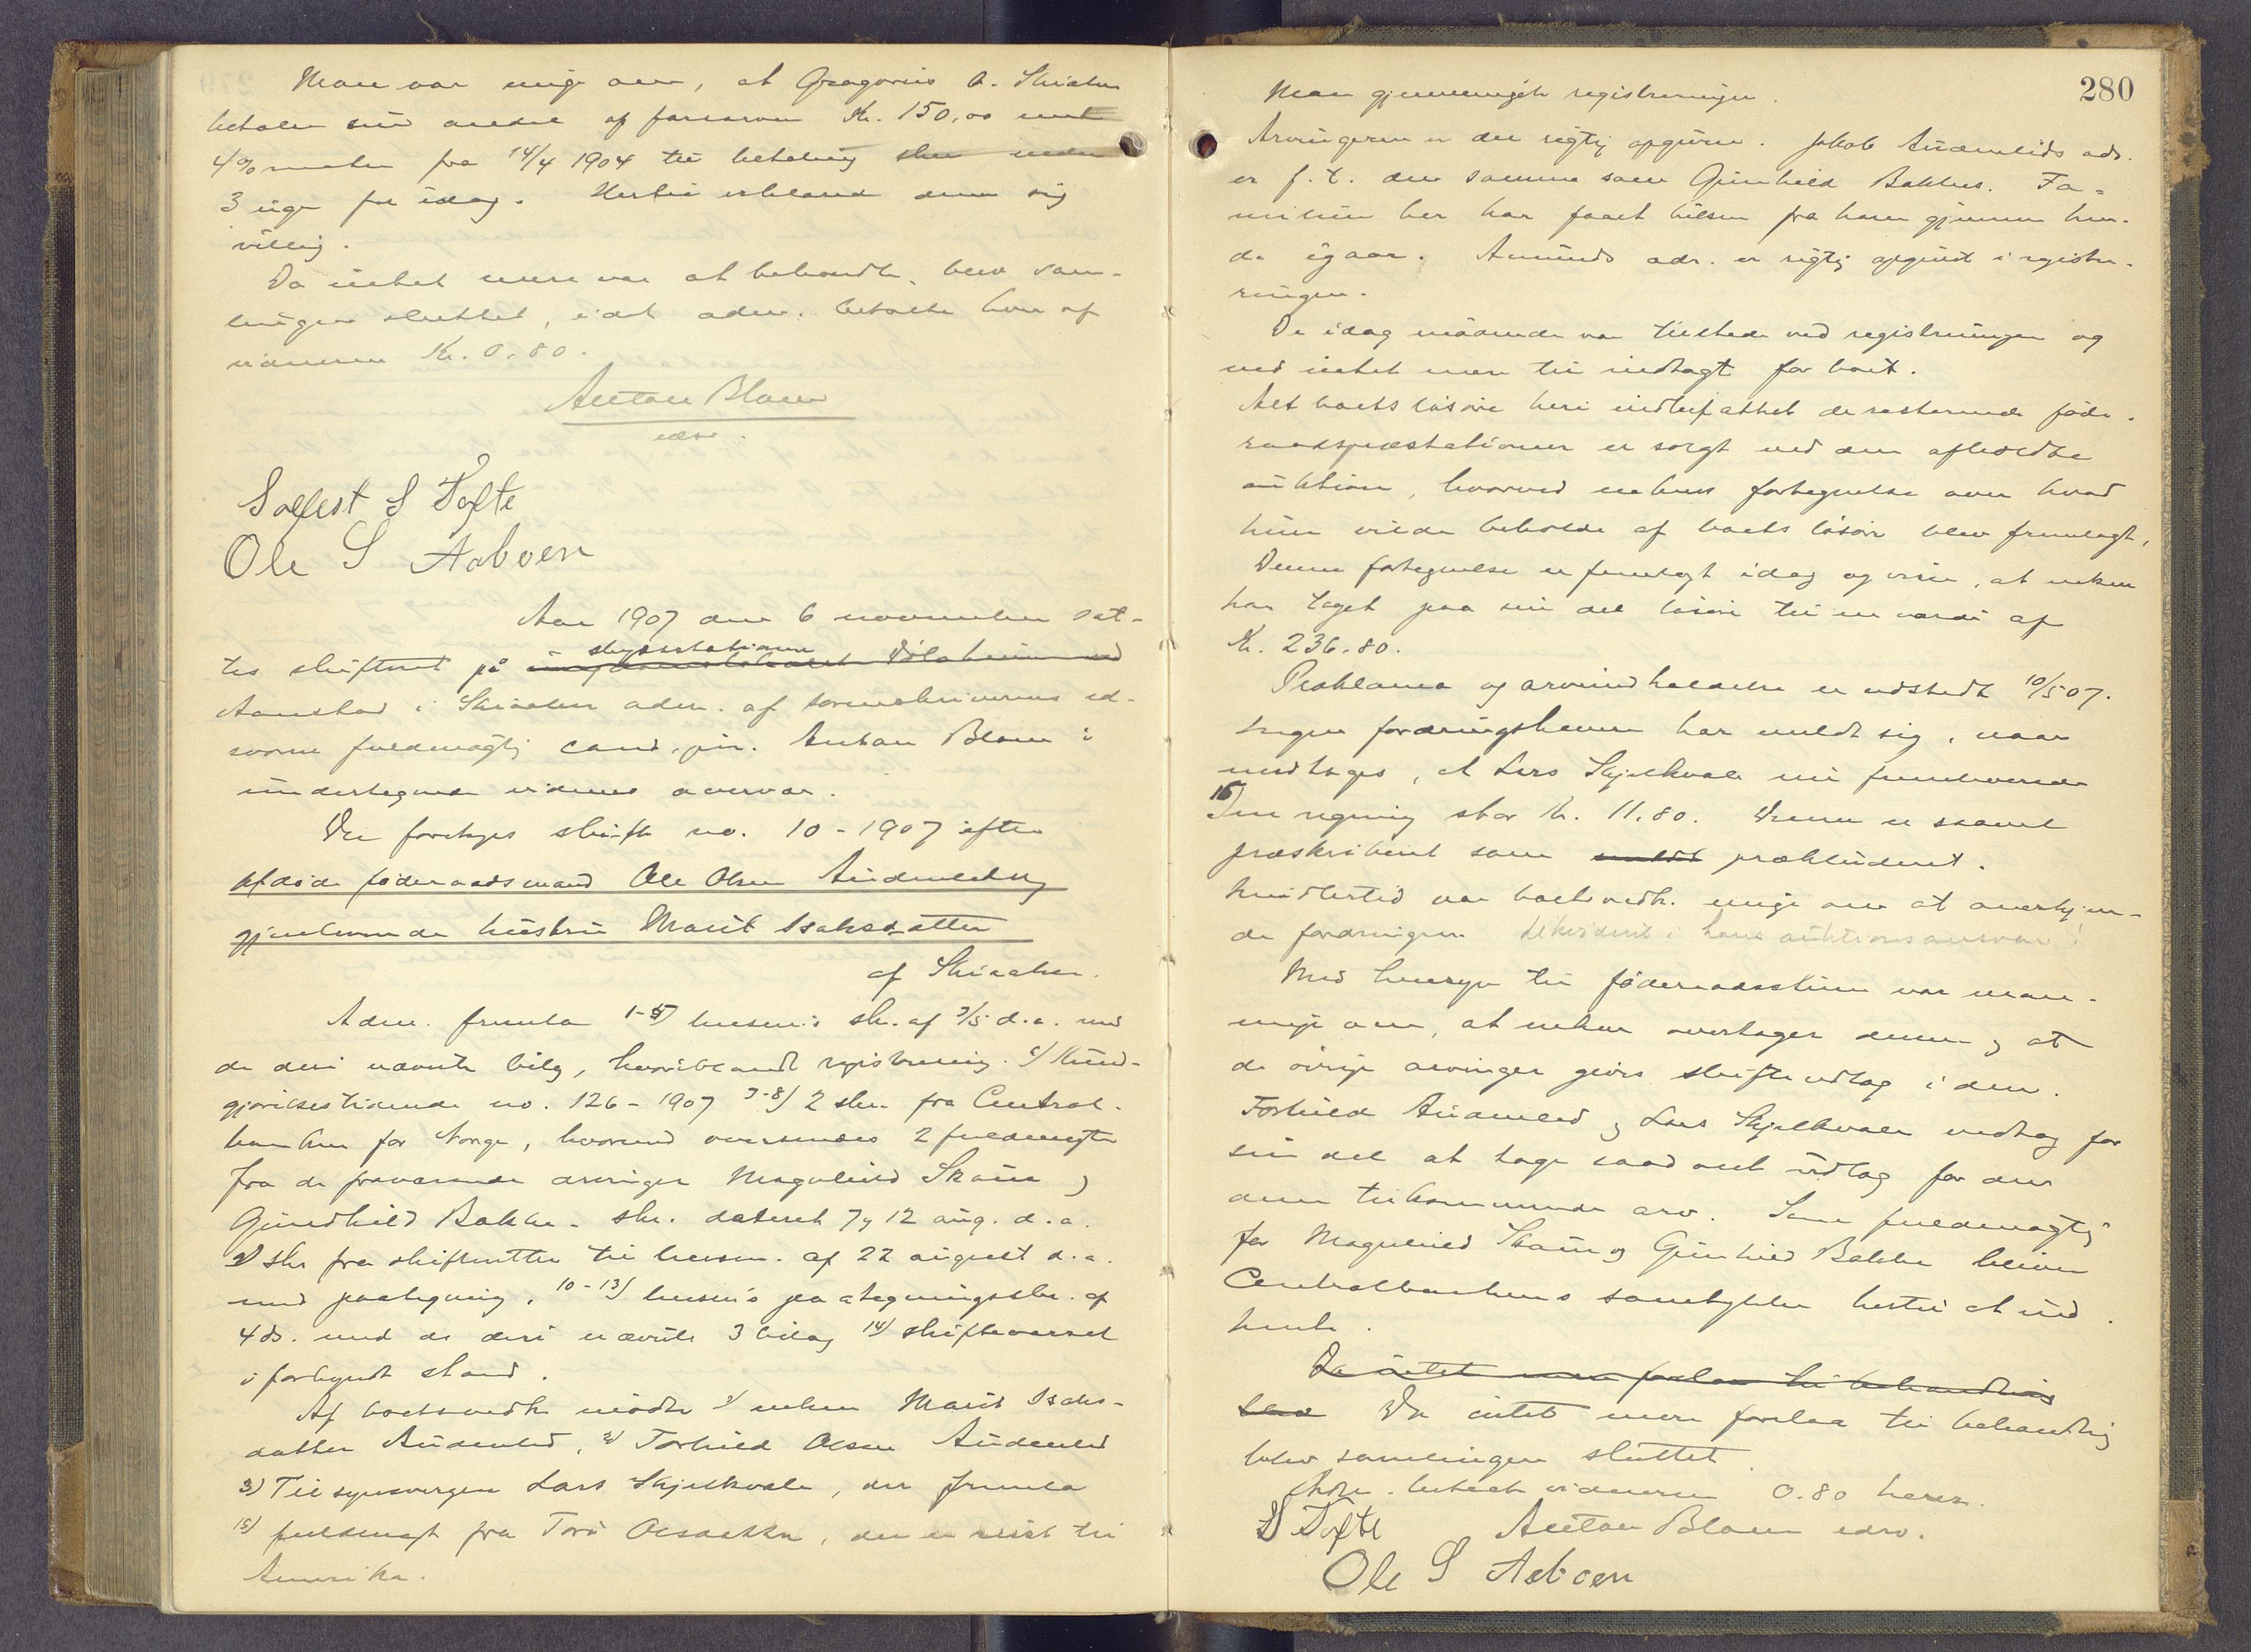 Man var enige om, at Gregorius A. Skiaker
betaler sin andel af farsarven Kr. 150,00 
4% renter fra 14/4 1904 til betaling sker inden
3 uger fra idag. Hertil erklærte denne sig
villig.
Da intet mere var at behandle, blev sam-
lingen sluttet, idet adm. betalte hver af
vidnerne Kr. 0.80.
Anton Blom
edsv.
Solfest S Tofte
Ole S Aaboen
Aar 1907 den 6 november sat-
skysstationen
tes skifteret på
Aamstad i Skiaker adm. af sorenskriverens ed-
svorne fuldmægtig cand. jur. Anton Blom i
undertegnede vidners overvær.
Der foretoges skifte no. 10 - 1907 efter
afdøde føderaadsmand Ole Olsen Audenlid og
gjenlevende hustru Marit Isaksdatter
af Skiaker.
Adm. fremla 1-5) lensm.s skr. af 3/5 d.a. med
de deri nævnte bilag, hvoriblandt registrering. 6) Kund-
gjørelsestidende no. 126 - 1907 7-8) 2 skr. fra Central-
banken for Norge, hvormed oversendes 2 fuldmagter
fra de fraværende arvinger Magnhild Skaim og
Gundhild Bakke. skr. dateret 7 og 12 aug. d.a.
9) skr fra skifteretten til lensm. af 22 august d.a.
med paategning, 10-13) lensm's paategningsskr. af
4 ds. med de deri nævnte 3 bilag 14) skiftevæsnet
i forkyndt stand.
Af boets vedk. mødte 1) enken Marit Isaks-
datter Audenlid, 2) Torhild Olsen Audenlid
3) Tilsynsvergen Lars Skjelkvale, der fremla
15) fuldmagt fra Torø Olsdatter, der er reist til
Amerika.
280
Man gjennemgik registreringen.
Arvingerne er der rigtig opgivne. Jakob Audenlids adr.
er f.t. den samme som Gunhild Bakkes. Fa-
milien her har faaet hilsen fra ham gjennem hen-
de igaar. Amunds adr. er rigtig opgivet i registre-
ringen.
De idag mødende var tilstede ved registreringen og
ved intet mere til indtægt for boet.
Alt boets løsøre heri indbefattet de resterende føde-
raadspræstationer er solgt ved den afholdte
auktion, hvorved enkens fortegnelse over hvad
hun vilde beholde af boets løsøre blev fremlagt.
Denne fortegnelse er fremlagt idag og viser, at enken
har taget paa sin del løsøre til en værdi af
Kr. 236.80.
Proklama og arveindkaldelse er udstedt 10/5 07.
Ingen fordringshaver har meldt sig, naar
undtages, at Lars Skjelkvale nu fremleverede
16) Sin regning stor Kr. 11.80. Denne er saavel
præskriberet som meldt prækluderet.
Imidlertid var boets vedk. enige om at anerkjen-
de fordringen i hans auktionsansvar!
Med hensyn til føderaadsstuen var man
enige om, at enken overtager denne og at
de øvrige arvinger gives skifteudlæg i den.
Torhild Audenlid og Lars Skjelkvale vedtog for
sin del at tage saadant udlæg for den
dem tilkommende arv. Som fuldmægtig
for Magnhild Skaim og Gunhild Bakke bliver
Centralbankens samtykke hertil at ind-
hente.
Da intet mere forelaa til behandling
blev Da intet mere forelaa til behandling
blev samlingen sluttet.
Adm. betalte vidnerne 0.80 hver.
S Tofte Anton Blom edsv.
Ole S Aaboen